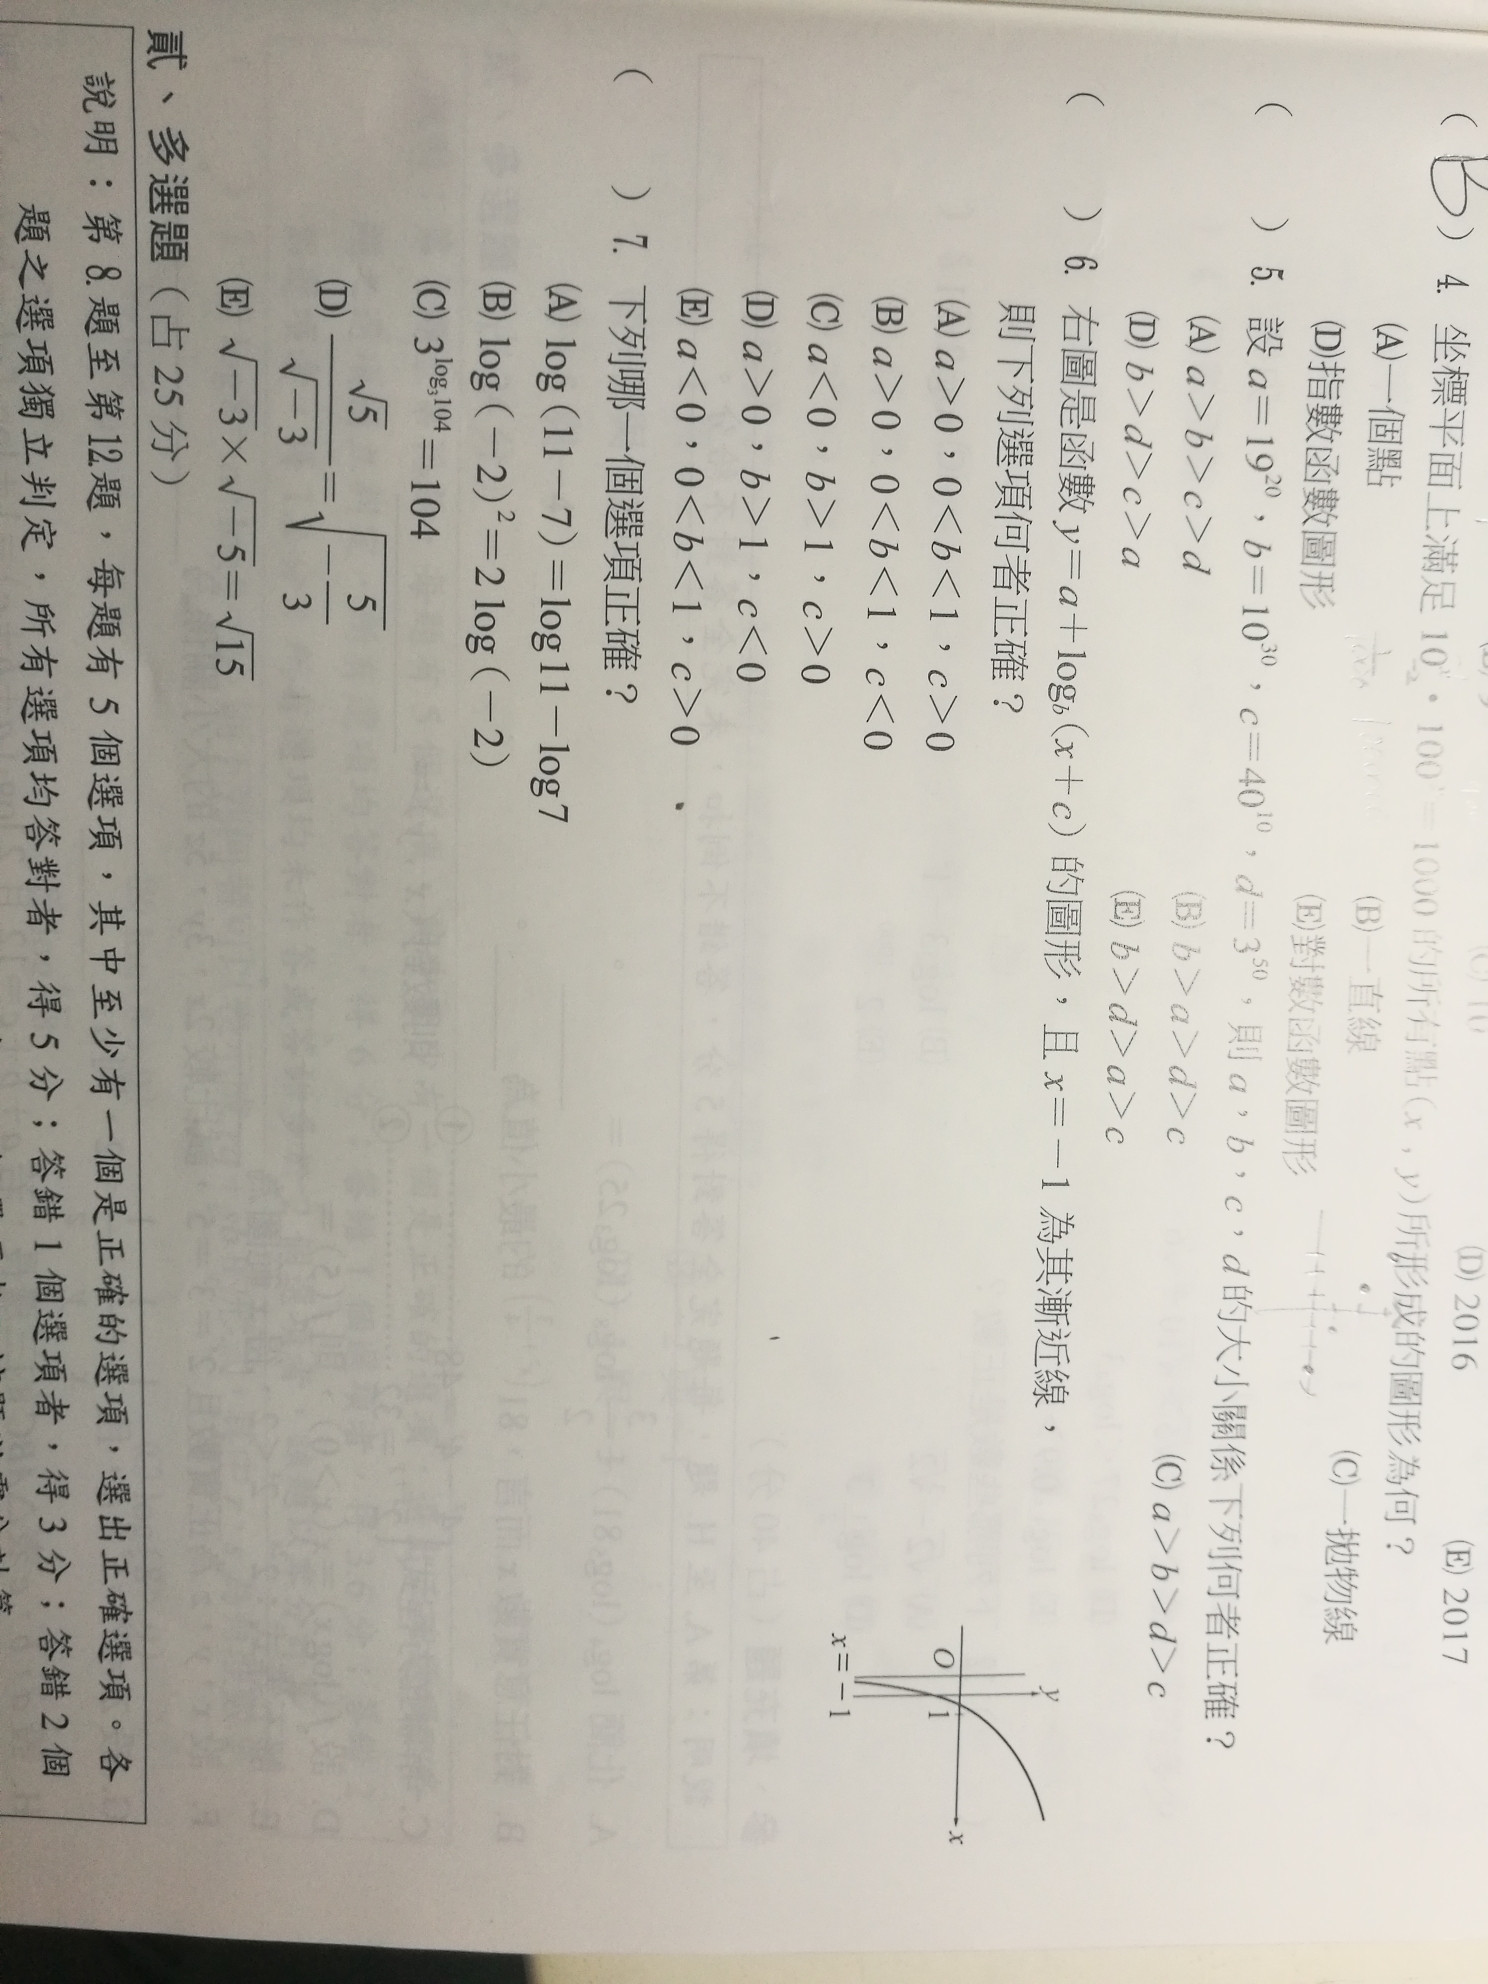 (D) 2016 (E) 2017
(B) 4. 坐標平面上滿足 10ˣ·100ʸ=1000 的所有點(x , y)所形成的圖形為何？
(A)一個點 (B)一直線 (C)一拋物線
(D)指數函數圖形 (E)對數函數圖形
( ) 5. 設 a=19²⁰，b=10³⁰，c=40¹⁰，d=3⁵⁰，則 a，b，c，d 的大小關係下列何者正確？
(A) a>b>c>d (B) b>a>d>c (C) a>b>d>c
(D) b>d>c>a (E) b>d>a>c
( ) 6. 右圖是函數 y=a+log_b(x+c) 的圖形，且 x=−1 為其漸近線，
則下列選項何者正確？
(A) a>0，0<b<1，c>0
(B) a>0，0<b<1，c<0
(C) a<0，b>1，c>0
(D) a>0，b>1，c<0
(E) a<0，0<b<1，c>0
y
O
1
x
x=−1
( ) 7. 下列哪一個選項正確？
(A) log(11−7)=log11−log7
(B) log(−2)²=2 log(−2)
(C) 3^{log₃104}=104
(D) √5/√−3=√(−5/3)
(E) √−3×√−5=√15
貳、多選題（占 25 分）
說明：第 8. 題至第 12. 題，每題有 5 個選項，其中至少有一個是正確的選項，選出正確選項。各
題之選項獨立判定，所有選項均答對者，得 5 分；答錯 1 個選項者，得 3 分；答錯 2 個